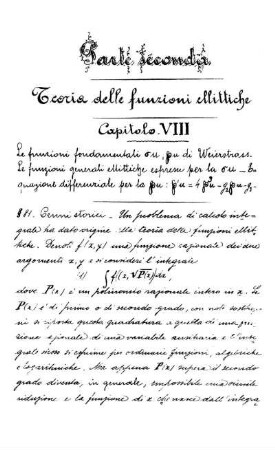 Parte seconda
Teoria delle funzioni ellittiche
Capitolo VIII
Le funzioni fondamentali σu, pu di Weierstrass.
Le funzioni generali ellittiche espresse per la σu – E-
quazione differenziale per la pu: p'²u = 4p³u – g₂pu – g₃
§ 81. Cenni storici – Un problema di calcolo inte-
grale ha dato origine alla teoria delle funzioni ellit-
tiche. Denoti f(x,y) una funzione razionale dei due
argomenti x, y e si consideri l'integrale
1) ∫ f(z, √P(z)) dz,
dove P(z) è un polinomio razionale intero in z. Se
P(z) è di primo o di secondo grado, con note sostituzio-
ni si riporta questa quadratura a quella di una fun-
zione razionale di una variabile ausiliaria e l'inte-
grale stesso si esprime per ordinarie funzioni, algebriche
e logaritmiche. Ma appena P(z) supera il secondo
grado diventa, in generale, impossibile una simile
riduzione e la funzione di z che nasce dall'integra